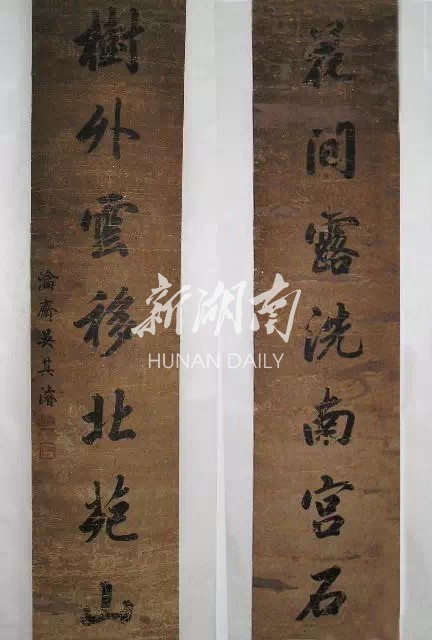 花間露洗南宮石
樹外雲移北苑山
瀹齋吳其濬
新湖南
HUNAN DAILY